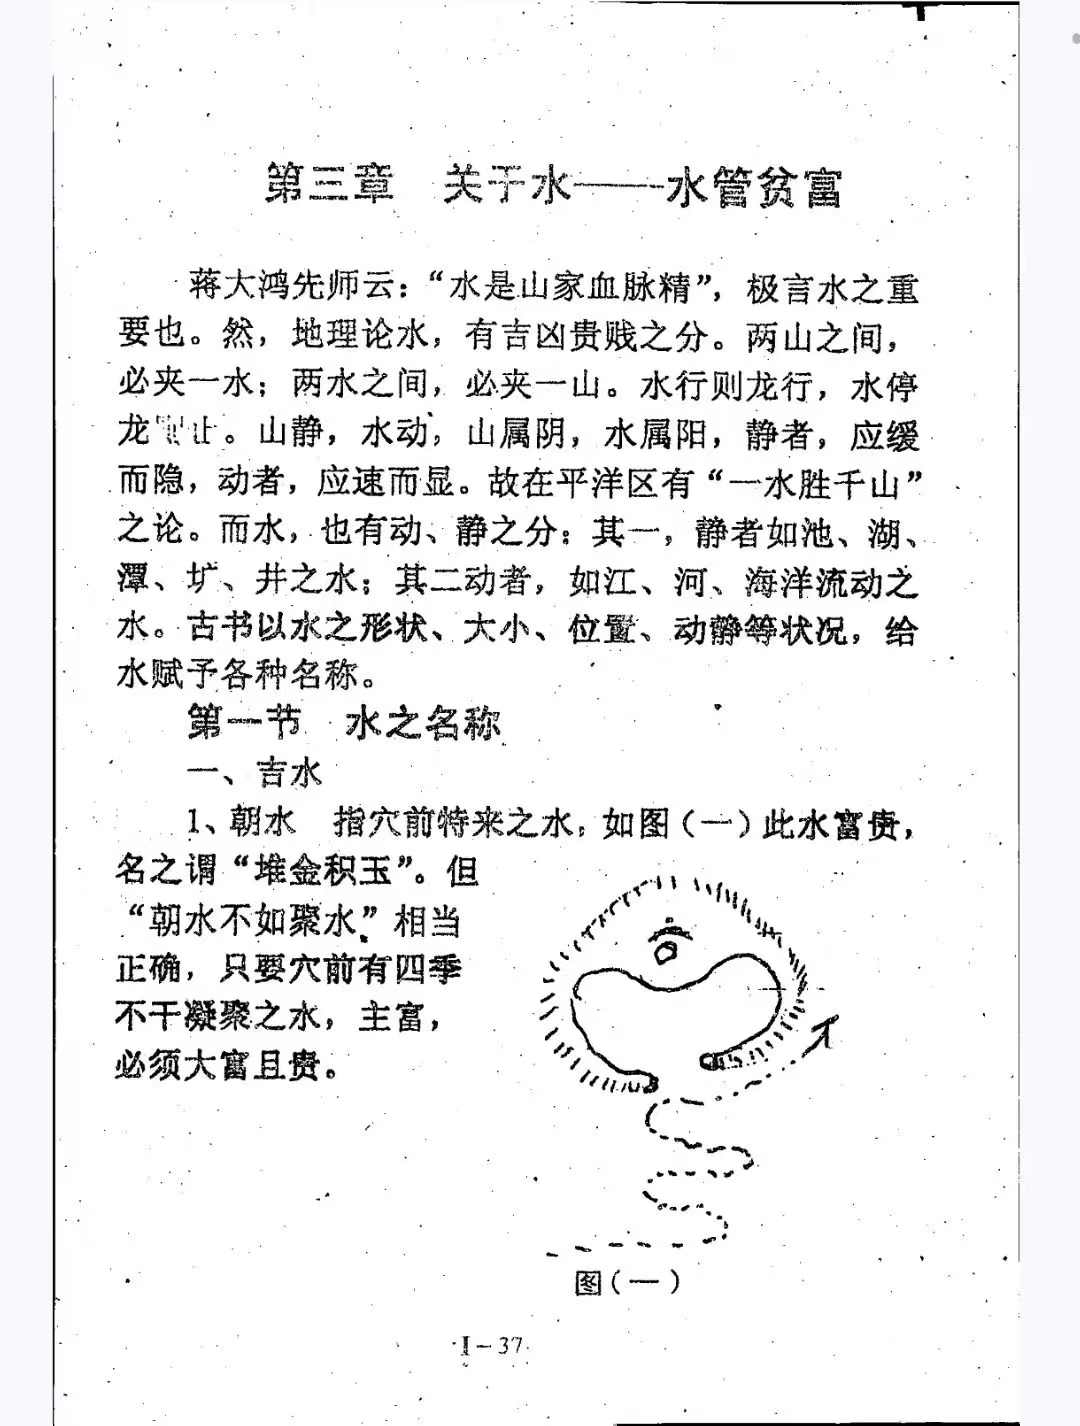 第三章 关于水——水管贫富
蒋大鸿先师云：“水是山家血脉精”，极言水之重
要也。然，地理论水，有吉凶贵贱之分。两山之间，
必夹一水；两水之间，必夹一山。水行则龙行，水停
龙 止。山静，水动，山属阴，水属阳，静者，应缓
而隐，动者，应速而显。故在平洋区有“一水胜千山”
之论。而水，也有动、静之分：其一，静者如池、湖、
潭、圹、井之水；其二动者，如江、河、海洋流动之
水。古书以水之形状、大小、位置、动静等状况，给
水赋予各种名称。
第一节 水之名称
一、吉水
1、朝水 指穴前特来之水，如图（一）此水富贵，
名之谓“堆金积玉”。但
“朝水不如聚水”相当
正确，只要穴前有四季
不干凝聚之水，主富，
必须大富且贵。
图（一）
I－37